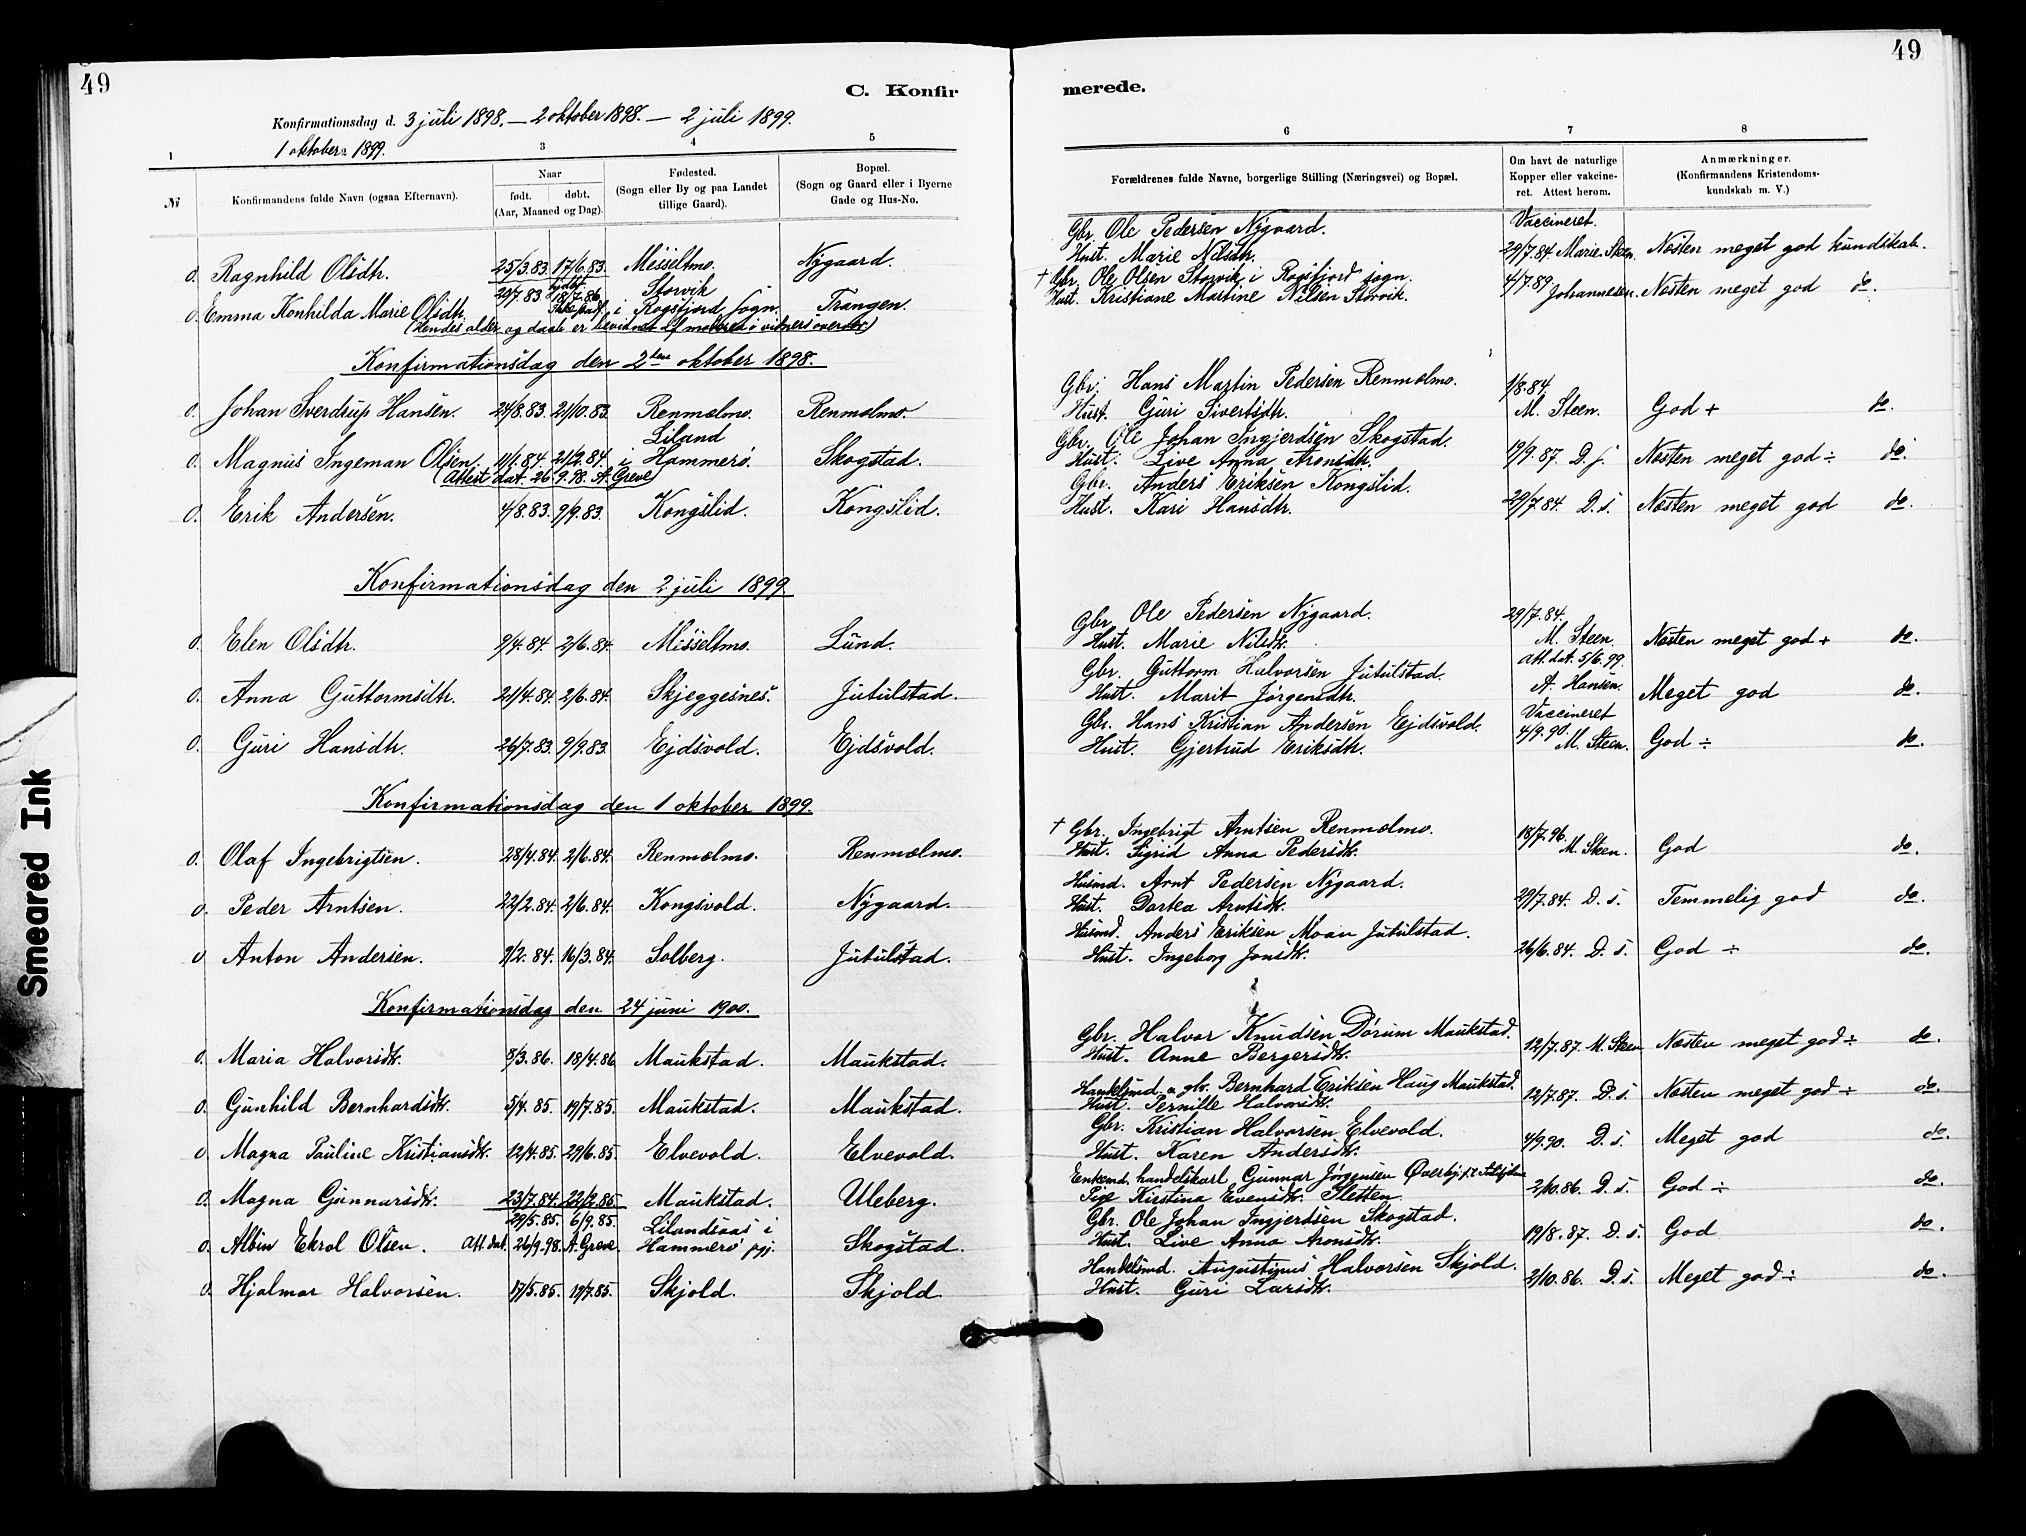 49
C. Konfir
Konfirmationsdag d. 3 juli 1898. — 2 oktober 1898. — 2 juli 1899.
1 oktober 1899.
1 3 4 5
№ Konfirmandens fulde Navn (ogsaa Efternavn).
Naar
født. døbt.
(Aar, Maaned og Dag).
Fødested.
(Sogn eller By og paa Landet
tillige Gaard).
Bopæl.
(Sogn og Gaard eller i Byerne
Gade og Hus-No.
0. Ragnhild Olsdtr. 25/3.83. 17/6.83. Misseltmo. Nygaard.
0. Emma Konhilda Marie Olsdtr. 29/7 83 18/7.86. Storvik i Rogsfjord sogn. Trangen.
Konfirmationsdag den 2den oktober 1898.
0. Johan Sverdrup Hansen. 24/8.83. 21/10.83. Renmælmo. Renmælmo.
0. Magnus Ingeman Olsen. 1/1.84. 21/2.84. Liland i Hammerø. Skogstad.
(Attest dat. 26/9.98. A. Greve)
0. Erik Andersen. 4/8.83. 9/9.83. Kongslid. Kongslid.
Konfirmationsdag den 2 juli 1899
0. Elen Olsdtr. 9/4.84. 2/6.84. Misseltmo. Lund.
0. Anna Guttormsdtr. 21/4.84. 2/6.84. Skjeggesnes. Jutulstad.
0. Guri Hansdtr. 26/7.83. 9/9.83. Ejdsvold. Ejdsvold.
Konfirmationsdag den 1 oktober 1899.
0. Olaf Ingebrigtsen. 28/4.84. 2/6.84. Renmælmo. Renmælmo.
0. Peder Arntsen. 22/2.84. 2/6.84. Kongsvold. Nygaard.
0 Anton Andersen. 9/2.84. 16/3.84. Solberg. Jutulstad.
Konfirmationsdag den 24 juni 1900.
0. Maria Halvorsdtr. 3/3.86. 18/4.86 Maukstad. Maukstad.
0. Gunhild Bernhardsdtr. 5/4.85. 19/7.85. Maukstad. Maukstad.
0. Magna Pauline Kristiansdtr. 12/4.85. 29/6.85. Elvevold. Elvevold.
0. Magna Gunnarsdtr. 23/7.84. 22/2.85. Maukstad. Uleberg.
0. Albin Ekrol Olsen. Att. dat. 26/9.98. A. Greve. 29/5.85. 6/9.85. Lilandsaas i Hammerø pgj. Skogstad.
0. Hjalmar Halvorsen. 17/5.85. 19/7.85. Skjold. Skjold.
49
merede.
6 7 8
Forældrenes fulde Navne, borgerlige Stilling (Næringsvei) og Bopæl.
Om havt de naturlige
Kopper eller vakcine-
ret. Attest herom.
Anmærkninger.
(Konfirmandens Kristendoms-
kundskab m. V.)
Gbr. Ole Pedersen Nygaard. Vaccineret
Hust. Marie Nilsdtr. 29/7.84. Marie Steen. Næsten meget god kundskab.
† Gbr. Ole Olsen Storvik i Rogsfjord sogn. 4/7.89.
Hust. Kristiane Martine Nilsen Storvik. Johannesen. Næsten meget god do.
Gbr. Hans Martin Pedersen Renmælmo. 1/8.84.
Hust. Guri Sivertsdtr. M. Steen. God + do.
Gbr. Ole Johan Ingjerdsen Skogstad.
Hust. Live Anna Aronsdtr. 19/9.87. D. s. Næsten meget god ÷ do.
Gbr. Anders Eriksen Kongslid.
Hust. Kari Hansdtr. 29/7.84. D. s. Næsten meget god do.
Gbr. Ole Pedersen Nygaard. 29/7.84.
Hust. Marie Nilsdtr. M. Steen. Næsten meget god + do.
Gbr. Guttorm Halvorsen Jutulstad. Att. dat. 5/6.99.
Hust. Marit Jørgensdtr. A. Hansen. Meget god do.
Gbr. Hans Kristian Andersen Ejdsvold. Vaccineret 4/9.90.
Hust. Gjertrud Eriksdtr. M. Steen. God ÷ do.
† Gbr. Ingebrigt Arntsen Renmælmo. 18/7.96.
Hust. Sigrid Anna Pedersdtr. M. Steen. God do.
Husmd. Arnt Pedersen Nygaard.
Hust. Dortea Arntsdtr. 29/7.84. D. s. Temmelig god do.
Husmd. Anders Eriksen Moan Jutulstad.
Hust. Ingeborg Jonsdtr. 26/6.84. D. s. God ÷ do.
Gbr. Halvor Knudsen Dørum Maukstad.
Hust. Anne Bergersdtr. 12/7.87. M. Steen Næsten meget god ÷ do.
Handelsmd. & gbr. Bernhard Eriksen Haug Maukstad.
Hust. Pernille Halvorsdtr. 12/7.87. D. s. Næsten meget god ÷ do.
Gbr. Kristian Halvorsen Elvevold.
Hust. Karen Andersdtr. 4/9.90. D. s. Meget god do.
Enkemd. handelskarl Gunnar Jørgensen Øverby
Pige Kirstina Evensdtr. Sletten 2/10.86. D. s. God ÷ do.
Gbr. Ole Johan Ingjerdsen Skogstad.
Hust. Live Anna Aronsdtr. 19/8.87. D. s. God do.
Handelsmd. Augustinus Halvorsen Skjold.
Hust. Guri Larsdtr. 2/10.86. D. s. Meget god ÷ do.
Smeared Ink